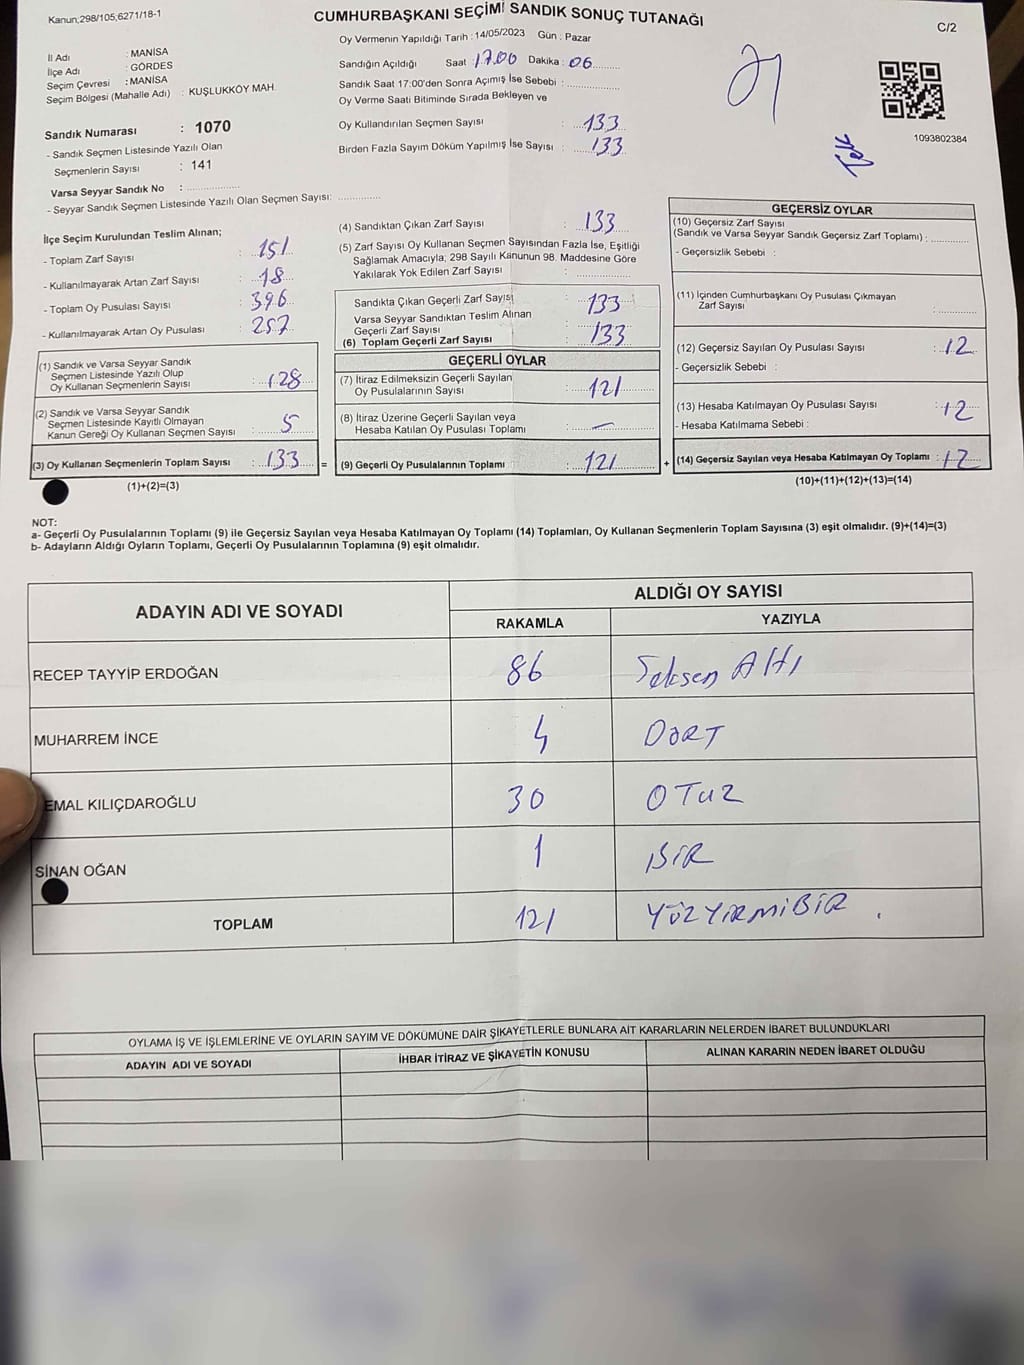 Kanun;298/105;6271/18-1
CUMHURBAŞKANI SEÇİMİ SANDIK SONUÇ TUTANAĞI
C/2
İl Adı : MANİSA
İlçe Adı : GÖRDES
Seçim Çevresi : MANİSA
Seçim Bölgesi (Mahalle Adı) : KUŞLUKKÖY MAH.
Sandık Numarası : 1070
- Sandık Seçmen Listesinde Yazılı Olan
Seçmenlerin Sayısı : 141
Varsa Seyyar Sandık No : ....................
- Seyyar Sandık Seçmen Listesinde Yazılı Olan Seçmen Sayısı: ................
Oy Vermenin Yapıldığı Tarih : 14/05/2023 Gün : Pazar
Sandığın Açıldığı Saat : 17.00 Dakika : 06
Sandık Saat 17:00'den Sonra Açımış İse Sebebi : ................
Oy Verme Saati Bitiminde Sırada Bekleyen ve
Oy Kullandırılan Seçmen Sayısı : 133
Birden Fazla Sayım Döküm Yapılmış İse Sayısı : 133
1093802384
İlçe Seçim Kurulundan Teslim Alınan;
- Toplam Zarf Sayısı : 151
- Kullanılmayarak Artan Zarf Sayısı : 18
- Toplam Oy Pusulası Sayısı : 396
- Kullanılmayarak Artan Oy Pusulası : 257
(1) Sandık ve Varsa Seyyar Sandık
Seçmen Listesinde Yazılı Olup
Oy Kullanan Seçmenlerin Sayısı : 128
(2) Sandık ve Varsa Seyyar Sandık
Seçmen Listesinde Kayıtlı Olmayan
Kanun Gereği Oy Kullanan Seçmen Sayısı : 5
(3) Oy Kullanan Seçmenlerin Toplam Sayısı : 133 =
(1)+(2)=(3)
(4) Sandıktan Çıkan Zarf Sayısı : 133
(5) Zarf Sayısı Oy Kullanan Seçmen Sayısından Fazla İse, Eşitliği
Sağlamak Amacıyla; 298 Sayılı Kanunun 98. Maddesine Göre
Yakılarak Yok Edilen Zarf Sayısı : ................
Sandıkta Çıkan Geçerli Zarf Sayısı : 133
Varsa Seyyar Sandıktan Teslim Alınan
Geçerli Zarf Sayısı :
(6) Toplam Geçerli Zarf Sayısı : 133
GEÇERLİ OYLAR
(7) İtiraz Edilmeksizin Geçerli Sayılan
Oy Pusulalarının Sayısı : 121
(8) İtiraz Üzerine Geçerli Sayılan veya
Hesaba Katılan Oy Pusulası Toplamı : —
(9) Geçerli Oy Pusulalarının Toplamı : 121 +
GEÇERSİZ OYLAR
(10) Geçersiz Zarf Sayısı
(Sandık ve Varsa Seyyar Sandık Geçersiz Zarf Toplamı) : ............
- Geçersizlik Sebebi :
(11) İçinden Cumhurbaşkanı Oy Pusulası Çıkmayan
Zarf Sayısı : ............
(12) Geçersiz Sayılan Oy Pusulası Sayısı : 12
- Geçersizlik Sebebi :
(13) Hesaba Katılmayan Oy Pusulası Sayısı : 12
- Hesaba Katılmama Sebebi :
(14) Geçersiz Sayılan veya Hesaba Katılmayan Oy Toplamı : 12
(10)+(11)+(12)+(13)=(14)
NOT:
a- Geçerli Oy Pusulalarının Toplamı (9) ile Geçersiz Sayılan veya Hesaba Katılmayan Oy Toplamı (14) Toplamları, Oy Kullanan Seçmenlerin Toplam Sayısına (3) eşit olmalıdır. (9)+(14)=(3)
b- Adayların Aldığı Oyların Toplamı, Geçerli Oy Pusulalarının Toplamına (9) eşit olmalıdır.
ADAYIN ADI VE SOYADI ALDIĞI OY SAYISI
RAKAMLA YAZIYLA
RECEP TAYYİP ERDOĞAN 86 Seksen Altı
MUHARREM İNCE 4 DÖRT
EMAL KILIÇDAROĞLU 30 OTUZ
SİNAN OĞAN 1 BİR
TOPLAM 121 YÜZYİRMİBİR .
OYLAMA İŞ VE İŞLEMLERİNE VE OYLARIN SAYIM VE DÖKÜMÜNE DAİR ŞİKAYETLERLE BUNLARA AİT KARARLARIN NELERDEN İBARET BULUNDUKLARI
ADAYIN ADI VE SOYADI İHBAR İTİRAZ VE ŞİKAYETİN KONUSU ALINAN KARARIN NEDEN İBARET OLDUĞU